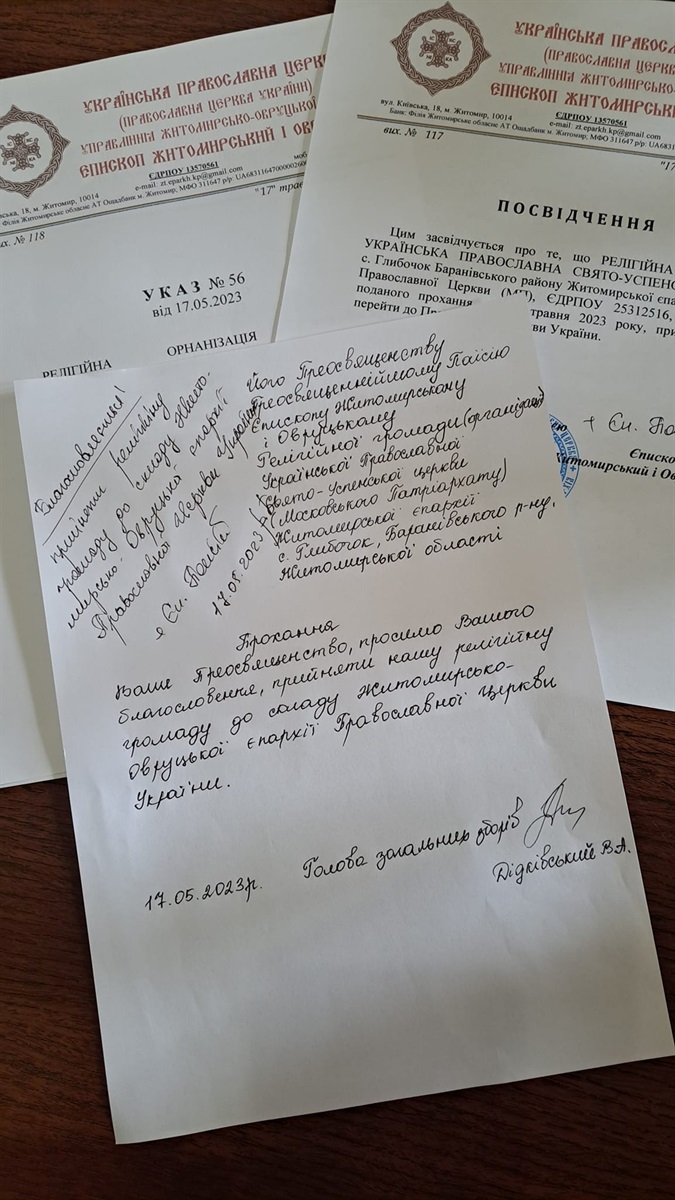 УКРАЇНСЬКА ПРАВОСЛАВНА ЦЕРК
(ПРАВОСЛАВНА ЦЕРКВА УКРАЇНИ)
УПРАВЛІННЯ ЖИТОМИРСЬКО-ОВРУЦЬКОЇ
ЄПИСКОП ЖИТОМИРСЬКИЙ І ОВ
ЄДРПОУ 13570561
18, м. Житомир, 10014
e-mail: zt.eparkh.kp@gmail.com
Філія Житомирське обласне АТ Ощадбанк м. Житомир, МФО 311647 р/р:
"17" трав
вих. № 118
УКАЗ № 56
від 17.05.2023
РЕЛІГІЙНА ОРГАНІЗАЦІЯ
УКРАЇНСЬКА ПРАВОСЛ
(ПРАВОСЛАВНА ЦЕРКВА
УПРАВЛІННЯ ЖИТОМИРСЬКО-
ЄПИСКОП ЖИТОМИРСЬКИЙ
ЄДРПОУ 13570561
вул. Київська, 18, м. Житомир, 10014
e-mail: zt.eparkh.kp@gmail.com
Банк: Філія Житомирське обласне АТ Ощадбанк м. Житомир, МФО 311647 р/р: UA
"17
вих. № 117
ПОСВІДЧЕННЯ
Цим засвідчується про те, що РЕЛІГІЙНА
УКРАЇНСЬКА ПРАВОСЛАВНА СВЯТО-УСПЕНС
с. Глибочок Баранівського району Житомирської єпа
Православної Церкви (МП), ЄДРПОУ 25312516,
поданого прохання травня 2023 року, при
перейти до Пр ви України.
+ Єп. Па
Єписко
Житомирський і Ов
Благословляється!
прийняти релігійну
громаду до складу Жито-
мирсько-Овруцької єпархії
Православної церкви України
+ Єп. Паїсій
17.05.2023
Його Преосвященству
Преосвященнійшому Паїсію
Єпископу Житомирському
і Овруцькому
Релігійної громади (організації)
Української Православної
Свято-Успенської церкви
(Московського Патріархату)
Житомирської єпархії
с. Глибочок, Баранівського р-ну,
Житомирської області
Прохання
Ваше Преосвященство, просимо Вашого
благословення, прийняти нашу релігійну
громаду до складу Житомирсько-
Овруцької єпархії Православної Церкви
України.
17.05.2023р. Голова загальних зборів
Дідківський В.А.